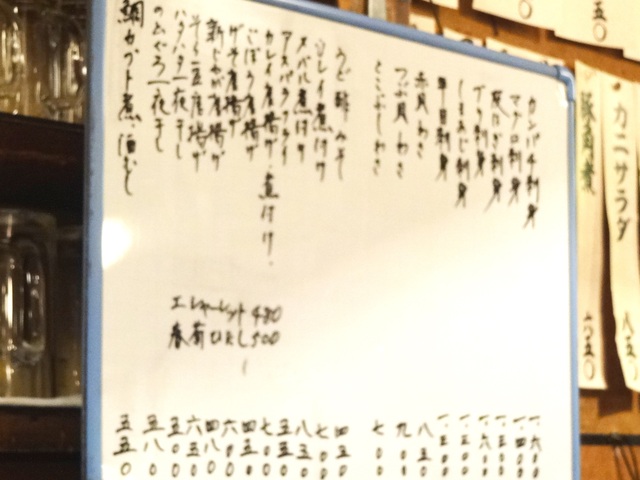 カニサラダ 八五〇
豚角煮 六五〇
カンパチ刺身 一、六〇〇
マグロ刺身 一、四〇〇
〆さば刺身 一、三〇〇
ブリ刺身 一、六〇〇
しまあじ刺身 一、五〇〇
平目刺身 一、三〇〇
赤貝わさ 八五〇
つぶ貝わさ 九〇〇
とこぶしわさ 七〇〇
うど酢みそ 四五〇
カレイ煮付け 七〇〇
メバル煮付け 八五〇
アスパラフライ 五五〇
カレイ唐揚げ、煮付け、 七〇〇
ごぼう唐揚げ 四五〇
ザーサイ唐揚げ 六〇〇
新じゃが唐揚げ 四八〇
そら豆唐揚げ 六五〇
ハタハタ一夜干し 五〇〇
のどぐろ一夜干し 五八〇
鯛カブト煮、酒むし 五五〇
エシャーレット 480
春菊ひたし 500